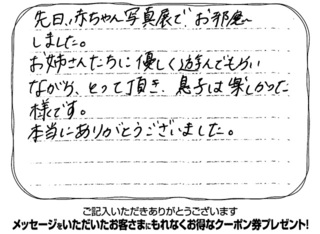 先日、赤ちゃん写真展でお邪魔
しました。
お姉さんたちに優しく遊んでもらい
ながら、とって頂き、息子は楽しかった
様です。
本当にありがとうございました。
ご記入いただきありがとうございます
メッセージをいただいたお客さまにもれなくお得なクーポン券プレゼント!